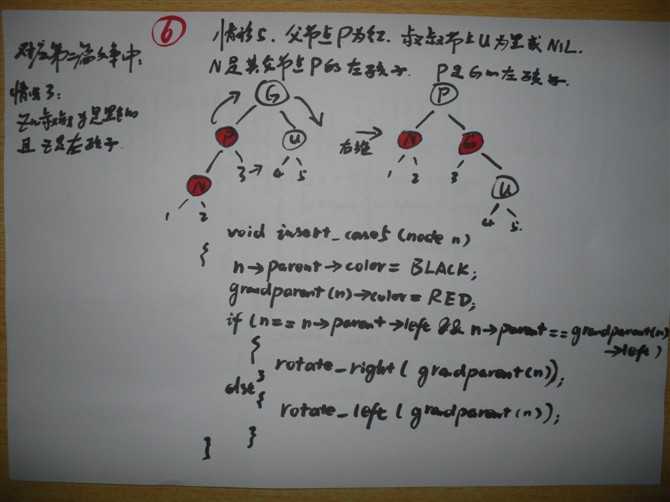 ⑥
情形5. 父节点P为红. 叔叔节点U为黑或NIL.
N是其父节点P的左孩子. P是G的左孩子.
对应第二篇文章中:
情况3:
z的叔叔y是黑色的
且z是左孩子.
G
P
U
N
3
4
5
1
2
右旋
P
N
G
1
2
3
U
4
5
void insert_case5 (node n)
{
n→parent→color = BLACK;
grandparent(n)→color = RED;
if (n == n→parent→left && n→parent == grandparent(n)
→left)
{
rotate_right( gradparent(n));
}
else
{
rotate_left ( gradparent(n));
}
}